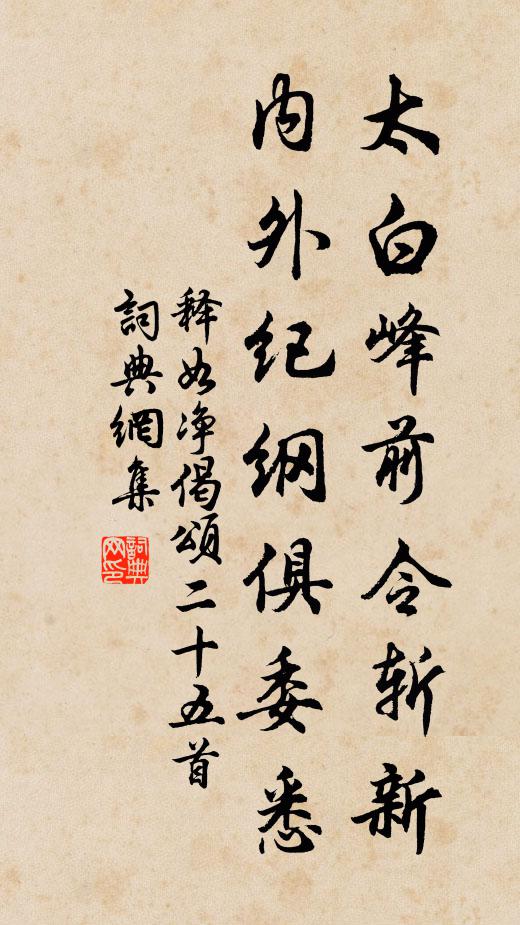 太白峰前令斩新
内外纪纲俱委悉
释如净偈颂二十五首
詞典網集
詞典网印